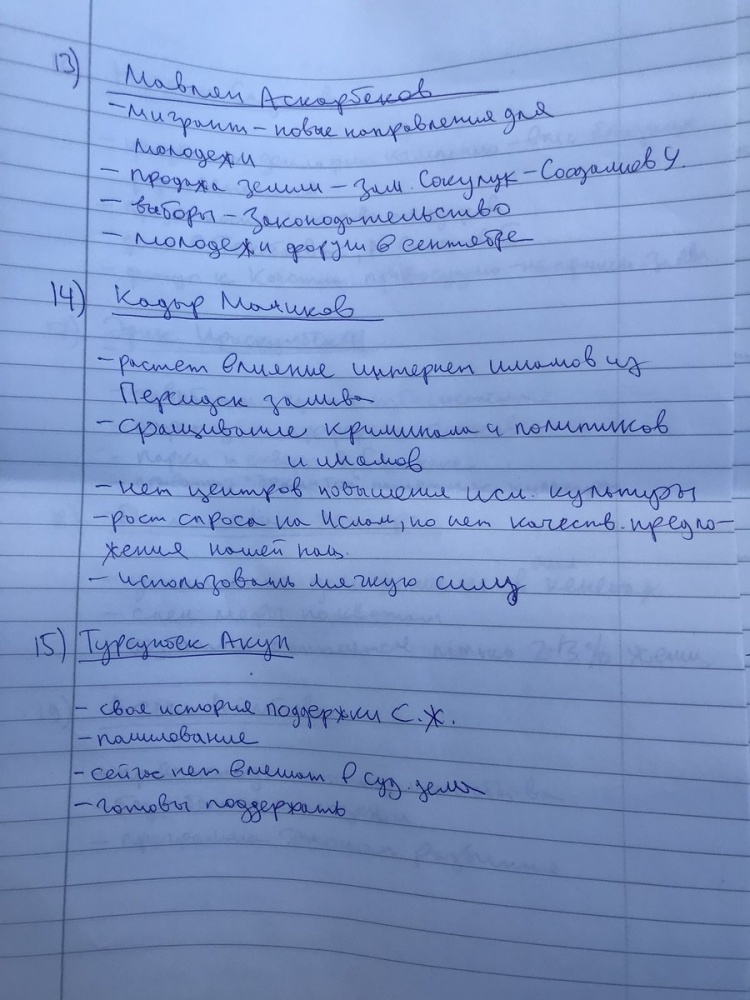 13) Мавлян Аскарбеков
- мигранты - новые направления для
молодежи
- продажа земли - зам. Сокулук -
- выборы - Законодательство
- молодежи форум в сентябре
14) Кадыр Маликов
- растет влияние интернет имамов из
Персидск залива
- сращивание криминала и политиков
и имамов
- нет центров повышения исл. культуры
- рост спроса на Ислам, но нет качеств. предло-
жения нашей нац.
- использовать мягкую силу
15) Турсунбек Акун
- своя история поддержки С.Ж.
- помилование
- сейчас нет вмешат в суд. дела
- готовы поддержать